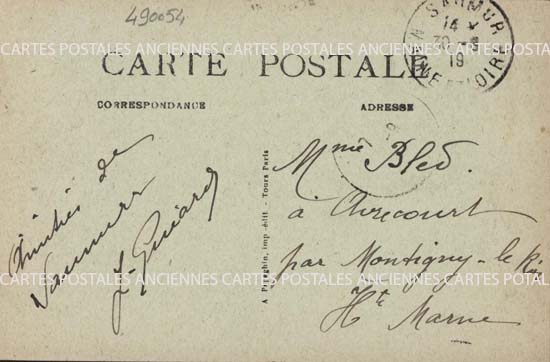 490054
SAUMUR
14 *
30 - 8
19
MNE ET LOIRE
CARTES POSTALES ANCIENNES CARTES POSTALES ANCIENNES CARTES POSTALES ANCIENNES
CARTE POSTALE
CORRESPONDANCE
ADRESSE
Amitiés de
Saumur
Guiard
A. Papeghin, imp. édit. - Tours Paris
Mme Bled.
à Avrecourt
par Montigny-le-Roi
Hte Marne
CARTES POSTALES ANCIENNES CARTES POSTALES ANCIENNES CARTES POSTALES ANCIENNES